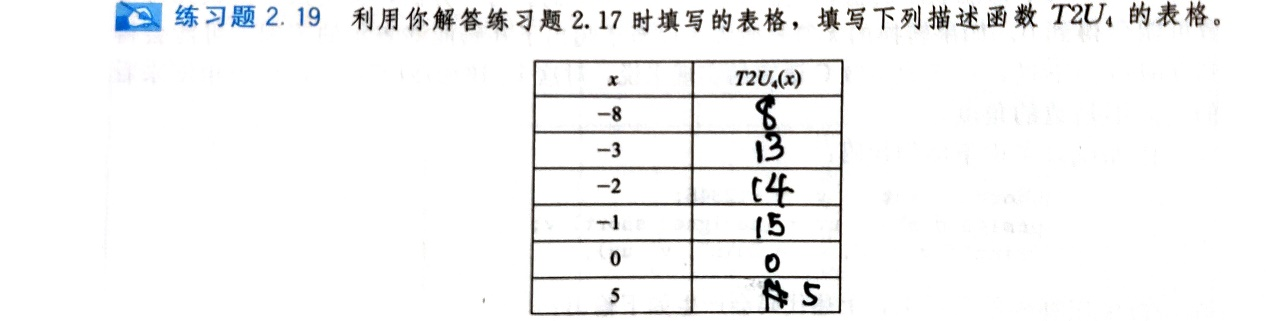 练习题 2.19 利用你解答练习题 2.17 时填写的表格，填写下列描述函数 T2U₄ 的表格。
x T2U₄(x)
-8 8
-3 13
-2 14
-1 15
0 0
5 5